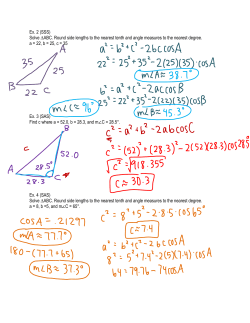 Ex. 2 (SSS)
Solve △ABC. Round side lengths to the nearest tenth and angle measures to the nearest degree.
a = 22, b = 25, c = 35
A
35
25
B 22 C
a² = b² + c² - 2bc cos A
22² = 25² + 35² - 2(25)(35) · cos A
m∠A ≈ 38.7°
b² = a² + c² - 2ac cos B
25² = 22² + 35² - 2(22)(35) cos B
m∠B ≈ 45.3°
m∠C ≈ 96°
Ex. 3 (SAS)
Find c where a = 52.0, b = 28.3, and m∠C = 28.5°.
B
c
52.0
28.5°
A 28.3 C
c² = a² + b² - 2ab cos C
c² = (52)² + (28.3)² - 2(52)(28.3) cos 28.5
√c² = √918.355
c ≈ 30.3
Ex. 4 (SAS)
Solve △ABC. Round side lengths to the nearest tenth and angle measures to the nearest degree.
a = 8, b = 5, and m∠C = 65°.
cos A = .21297
m∠A ≈ 77.7°
180 - (77.7 + 65)
m∠B ≈ 37.3°
c² = 8² + 5² - 2 · 8 · 5 · cos 65°
c ≈ 7.4
a² = b² + c² - 2bc cos A
8² = 5² + 7.4² - 2(5)(7.4) cos A
64 = 79.76 - 74 cos A